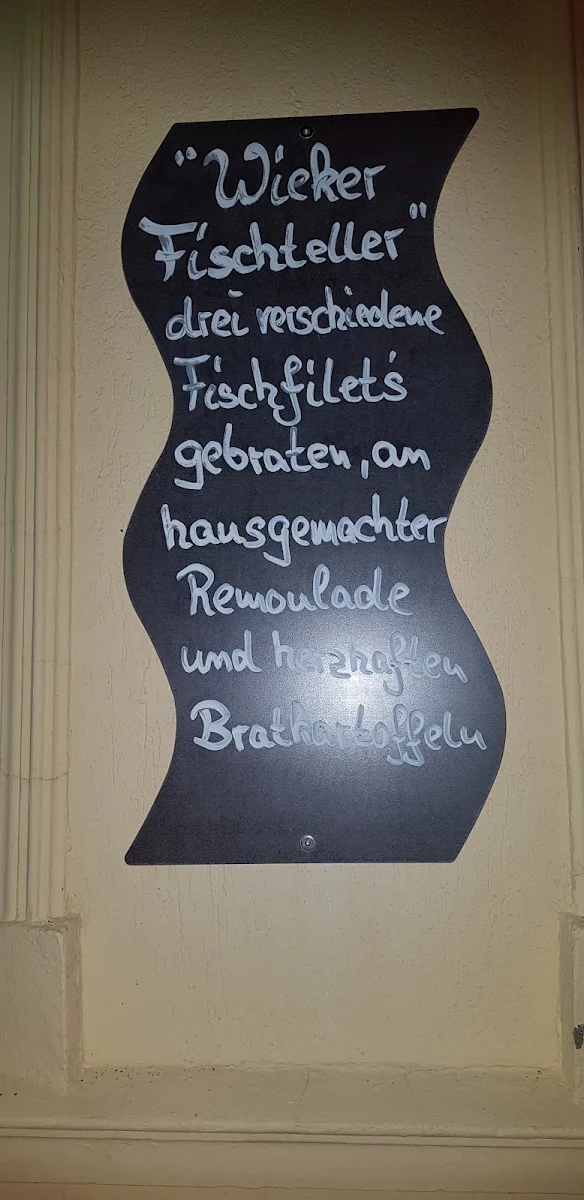 "Wieker
Fischteller"
drei verschiedene
Fischfilet's
gebraten, an
hausgemachter
Remoulade
und herzhaften
Bratkartoffeln